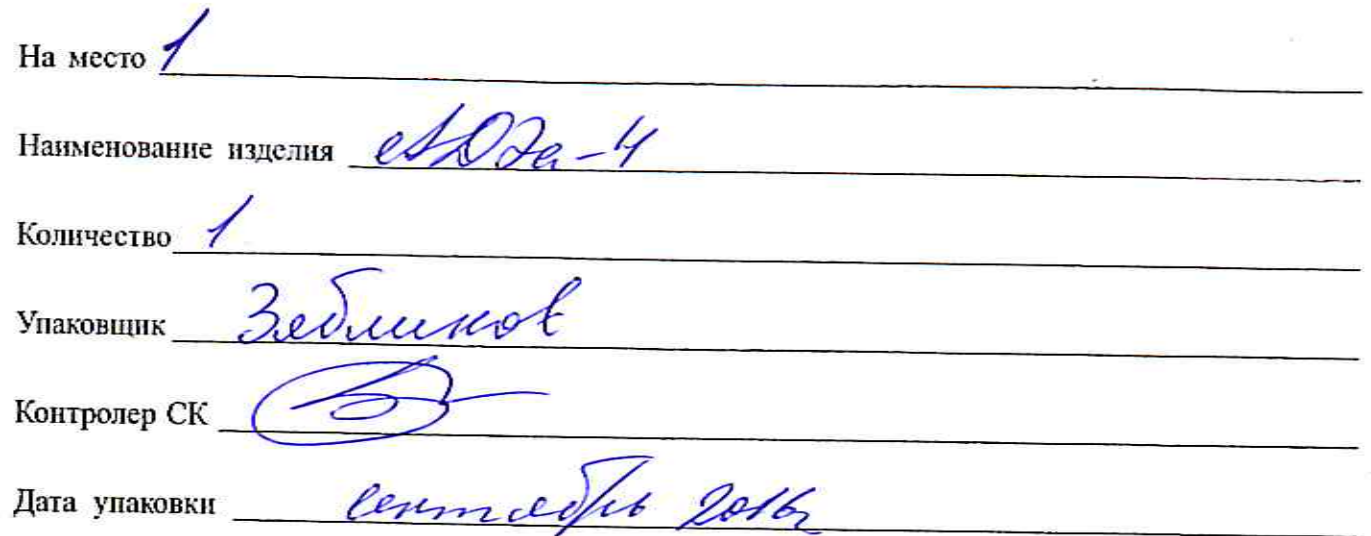 На место 1
Наименование изделия АДЭа-4
Количество 1
Упаковщик Зябликов
Контролер СК
Дата упаковки сентябрь 2016г